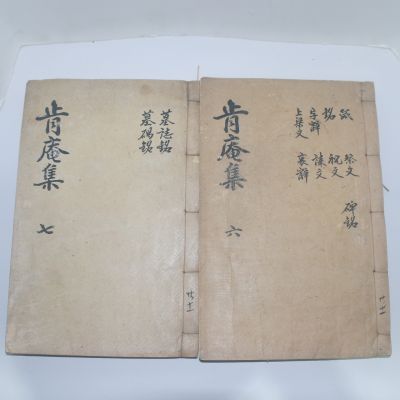 肯庵集
六
祭文
碑銘
銘
祝文
字辭
誄文
上梁文
哀辭
肯庵集
七
墓誌銘
墓碣銘